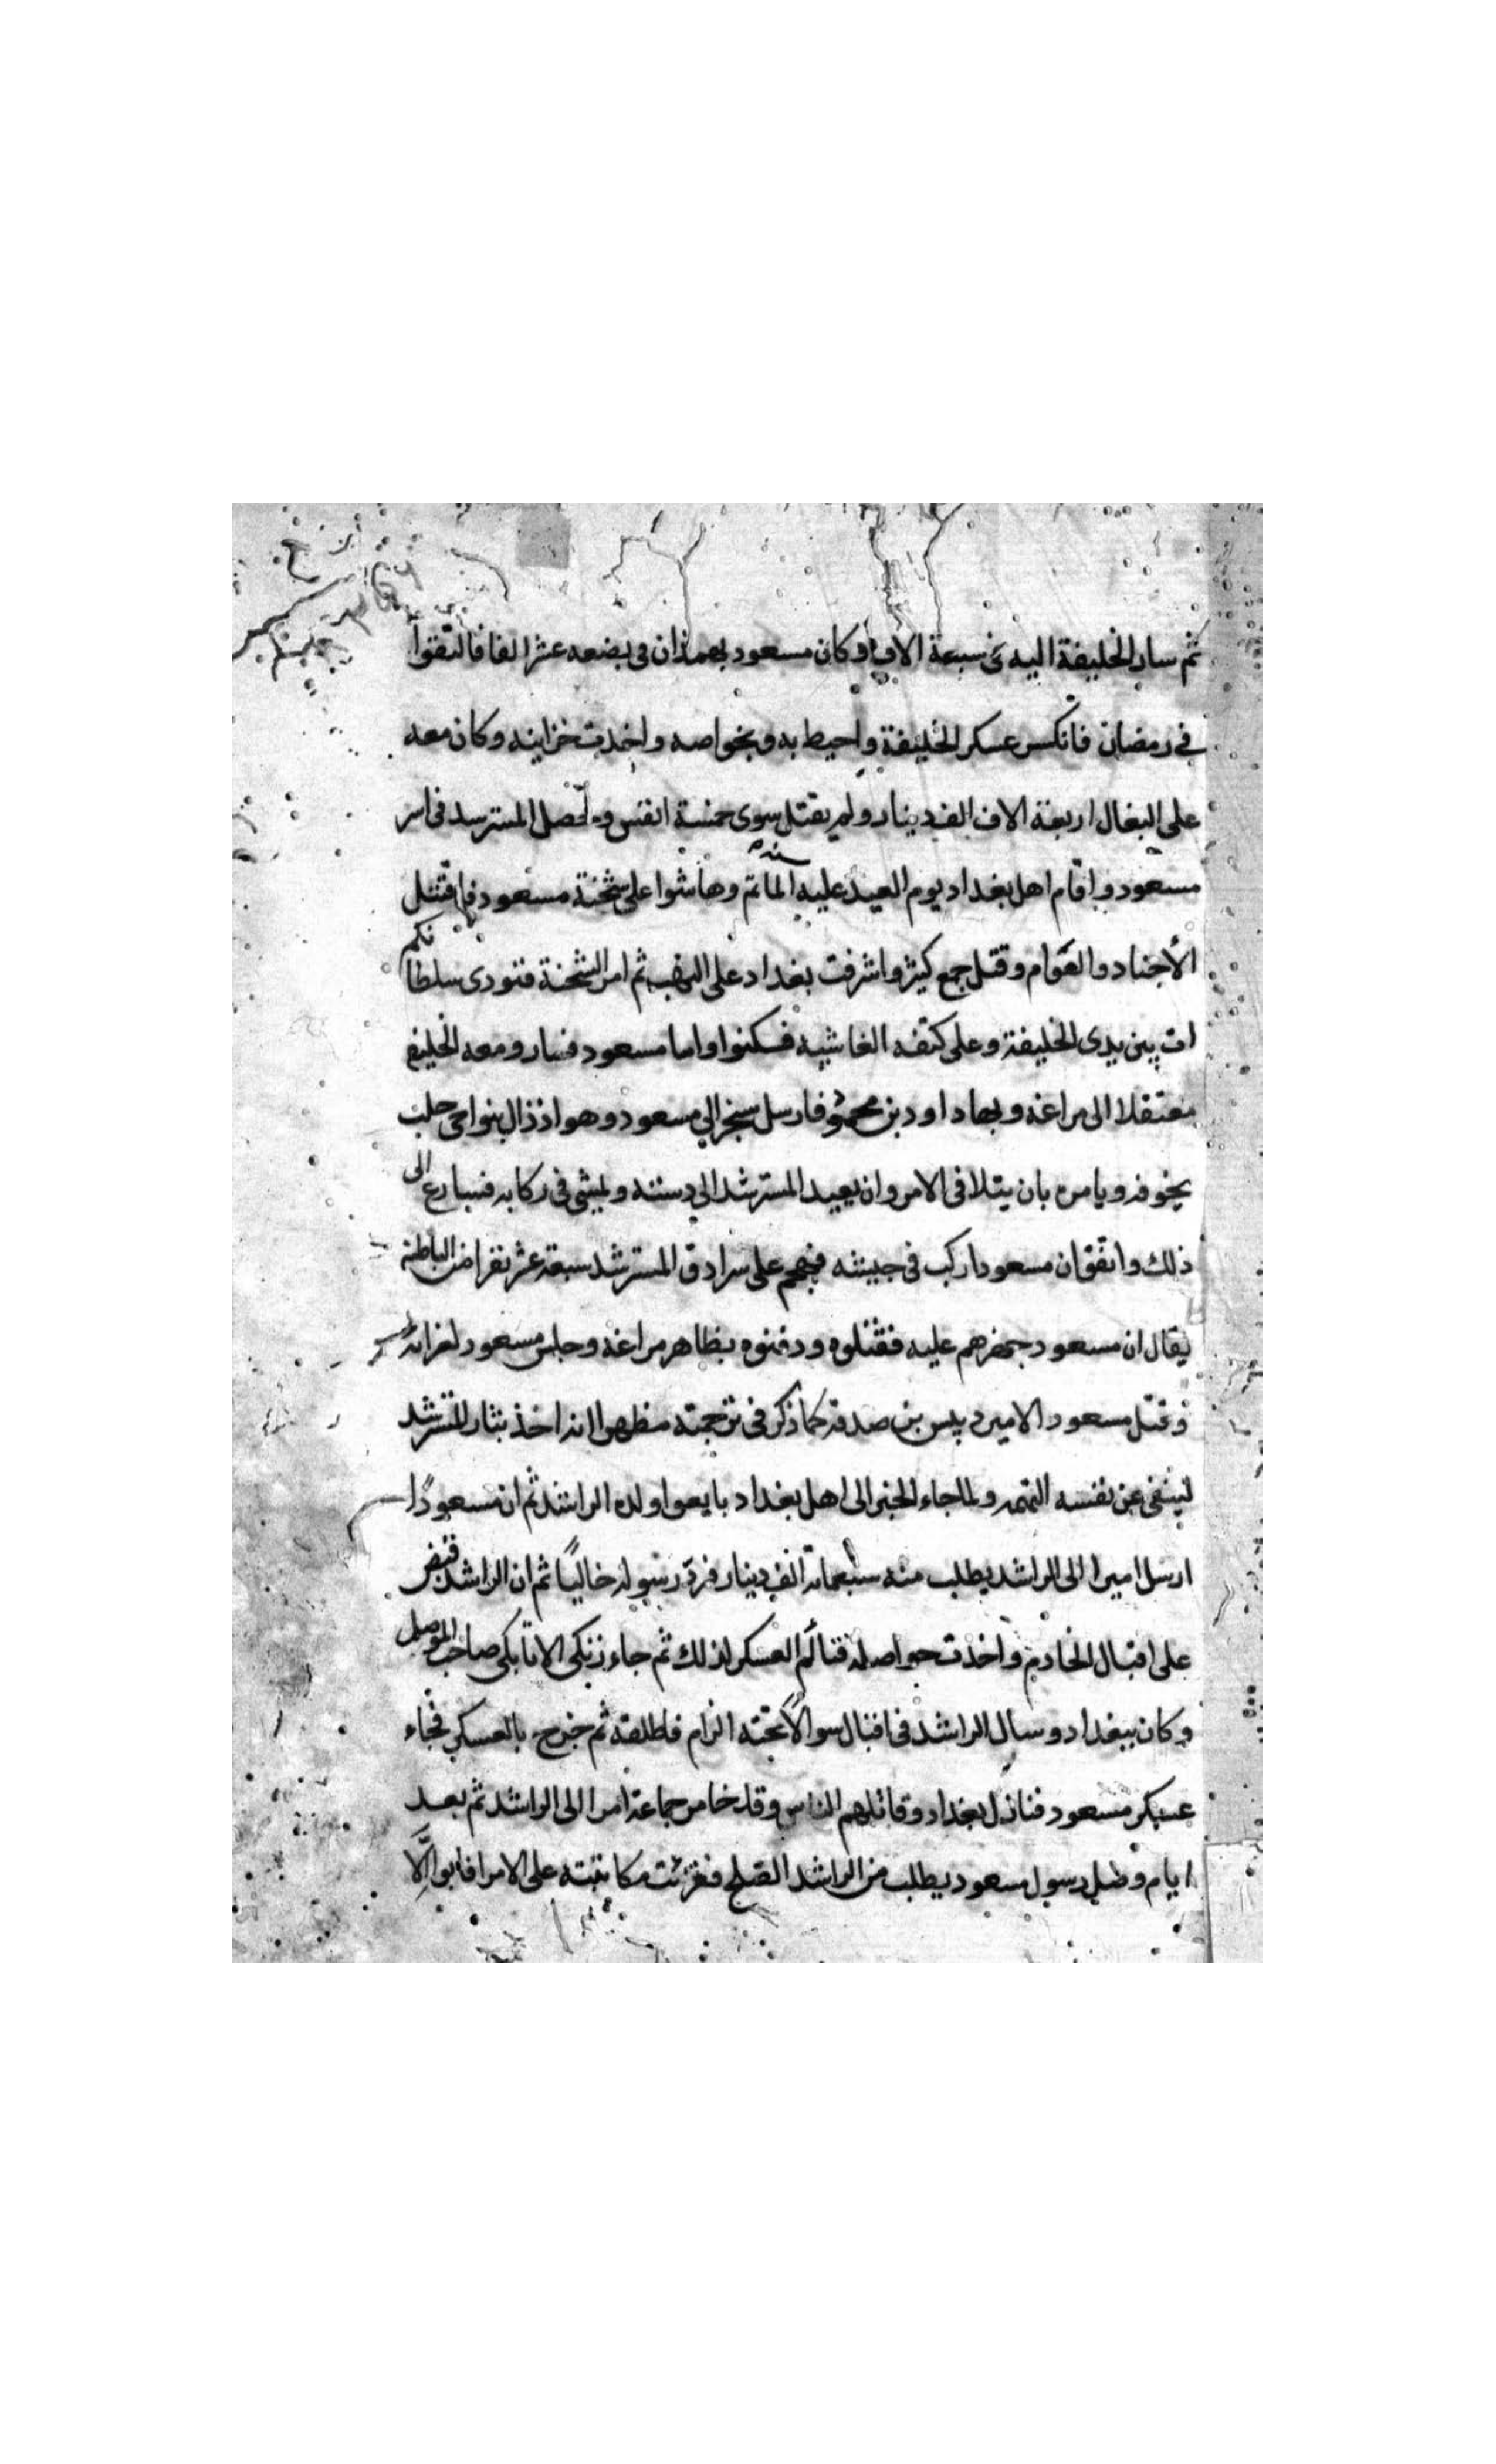 ثم سار الخليفة اليه في سبعة الاف وكان مسعود بهمذان في بضعه عشر الفا فالتقوا
في رمضان فانكسر عسكر الخليفة واحيط به وبخواصه واخذت خزاينه وكان معه
على البغال اربعة الاف الف دينار ولم يقتل سوى خمسة انفس وحصل المسترشد في اسر
مسعود واقام اهل بغداد يوم العيد عليه الماتم وهاشوا على شحنة مسعود فاقتتل
الأجناد والعوام وقتل جمع كثير واشرفت بغداد على النهب ثم امر الشحنة فنودى سلطانكم
ات بين يدى الخليفة وعلى كتفه الغاشيه فسكنوا واما مسعود فسار ومعه الخليفة
معتقلا الى مراغه وبها داود بن محمود فارسل سنجر الى مسعود وهو اذ ذاك بنواحى حلب
يخوفه ويامره بان يتلافى الامر وان يعيد المسترشد الى دسته ويمشى في ركابه فسارع الى
ذلك واتفق ان مسعودا ركب في جيشه فهجم على سرادق المسترشد سبعة عشر نفرا من الباطنه
يقال ان مسعود جهزهم عليه فقتلوه ودفنوه بظاهر مراغه وجلس مسعود لعزائه
وقتل مسعود الامير دبيس بن صدقه كما ذكر في ترجمته مظهرا انه اخذ بثار المسترشد
لينفى عن نفسه التهمه ولما جاء الخبر الى اهل بغداد بايعوا ولده الراشد ثم ان مسعودًا
ارسل اميرا الى الراشد يطلب منه سبعماية الف دينار فرد رسوله خاليًا ثم ان الراشد قبض
على اقبال الخادم واخذت حواصله فتالم العسكر لذلك ثم جاء زنكى الاتابكى صاحب الموصل
وكان ببغداد وسال الراشد في اقبال سوالًا تحته الزام فاطلقه ثم خرج بالعسكر فجاء
عسكر مسعود فنازل بغداد وقاتلهم الناس وقد خامر جماعة امرا الى الراشد ثم بعد
ايام وصل رسول مسعود يطلب من الراشد الصلح فقرئت مكاتبته على الامرا فابوا الَّا